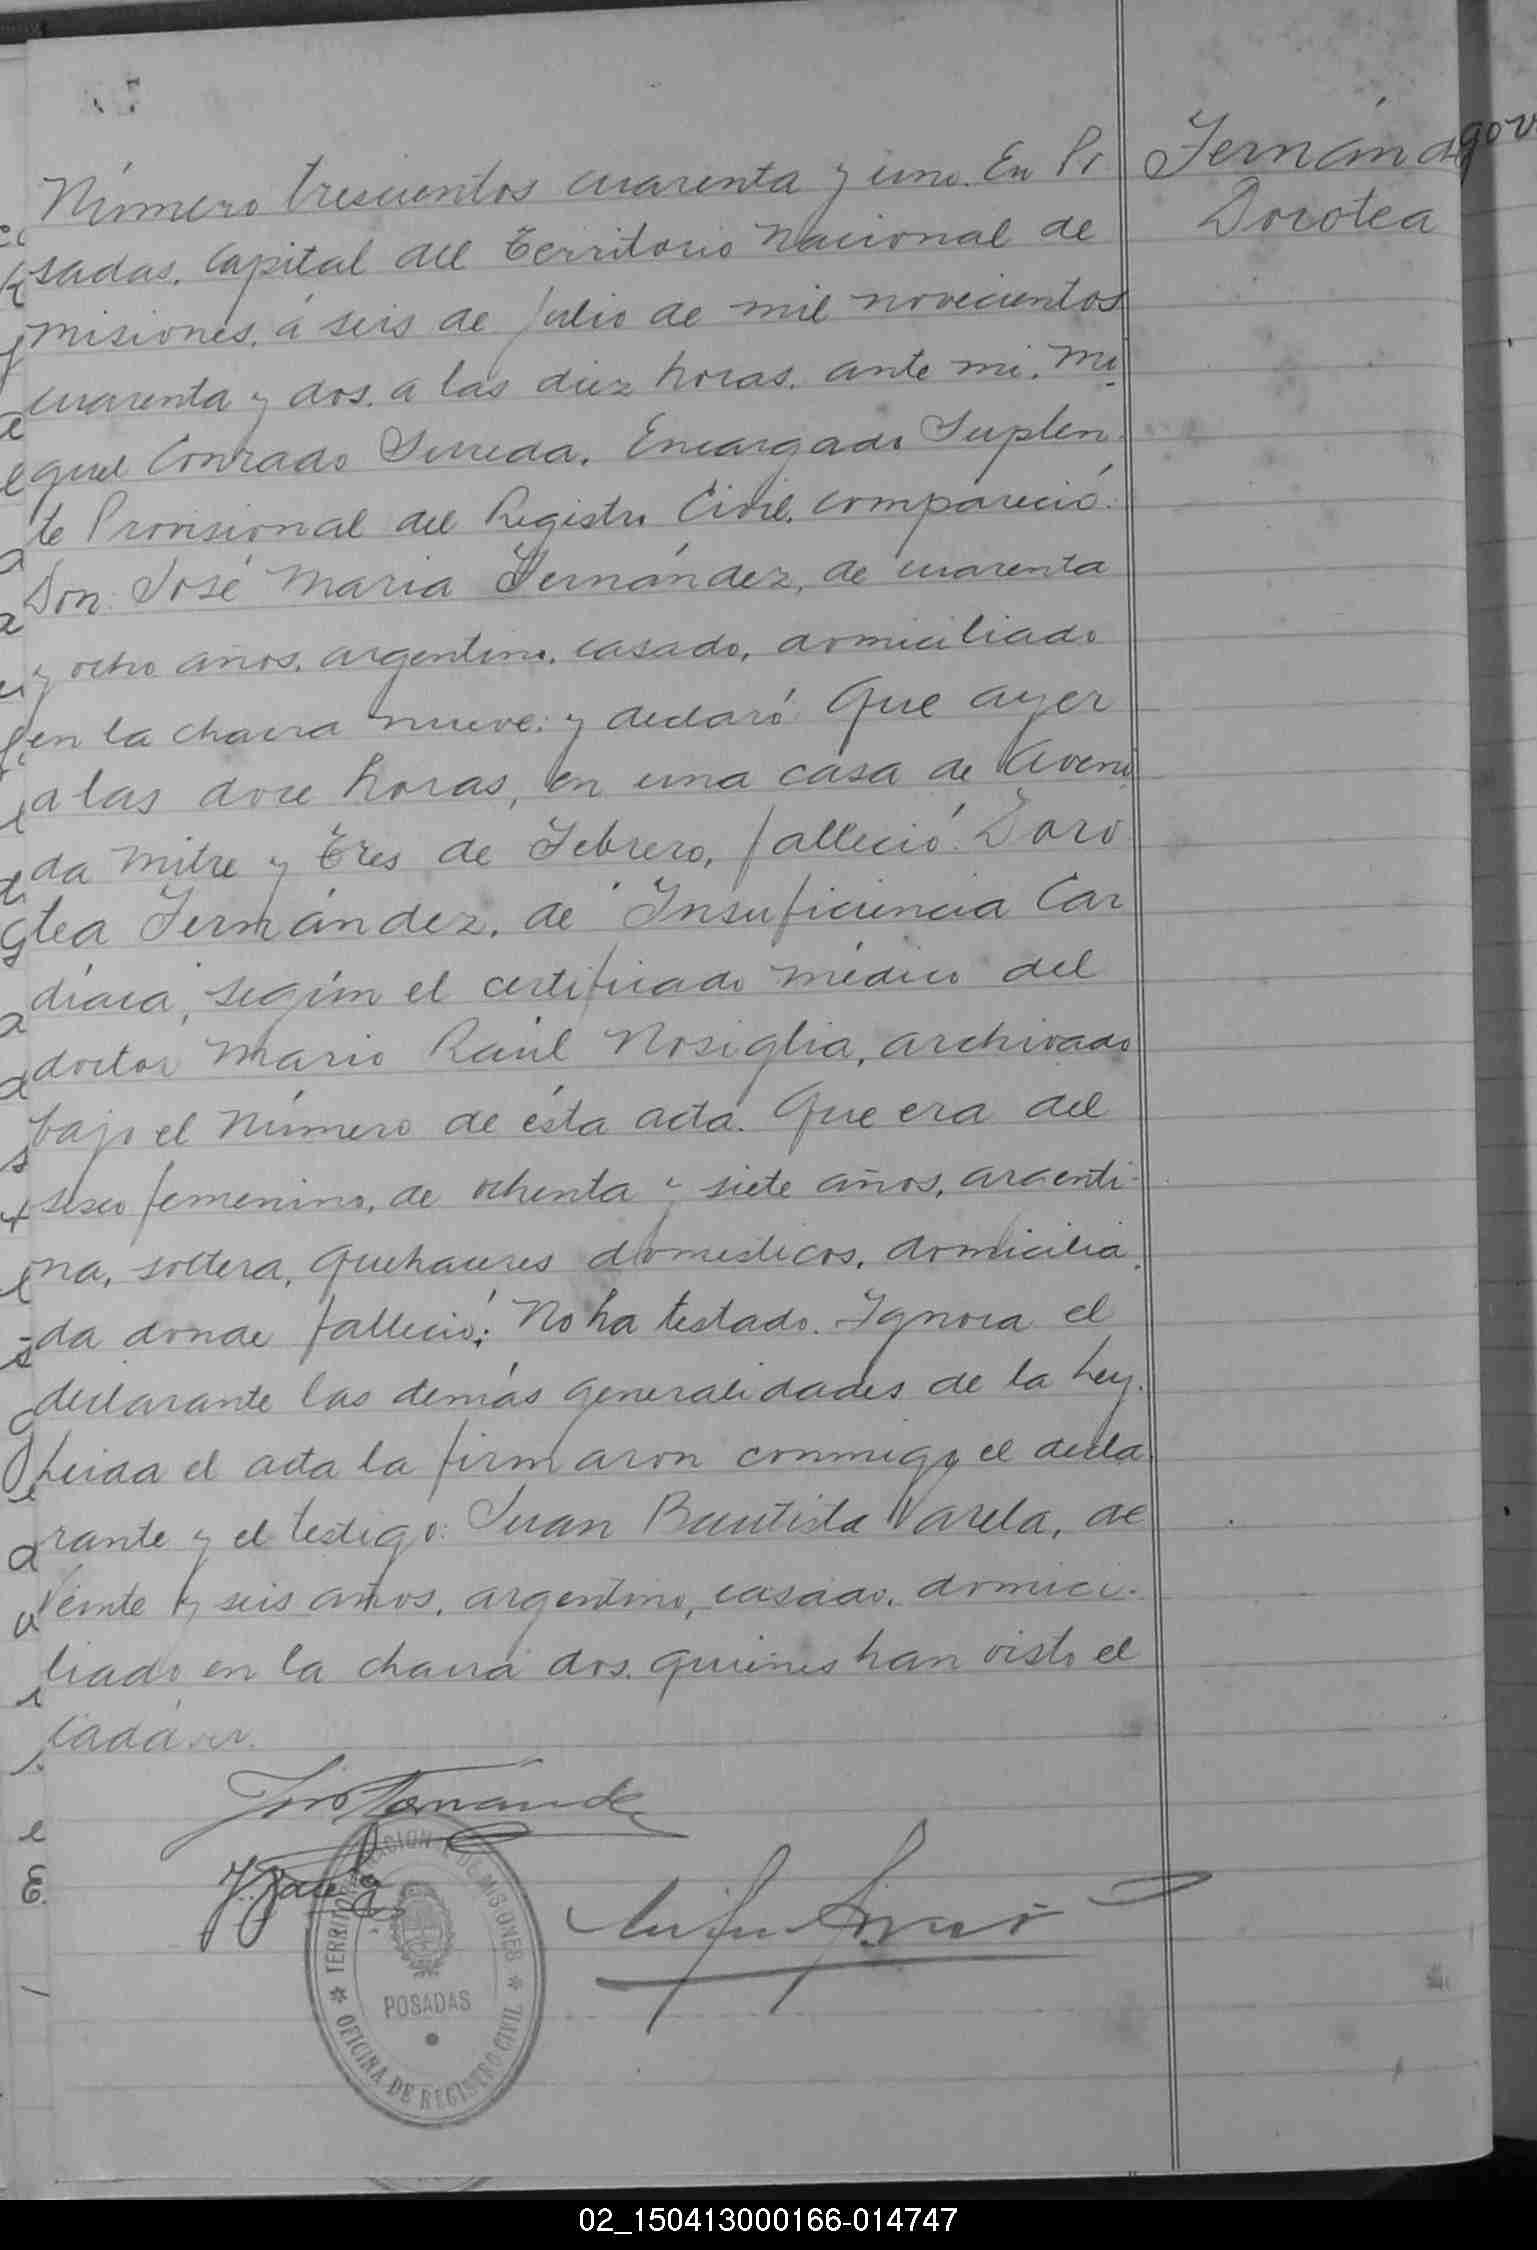 Fernández
Dorotea
Número trescientos cuarenta y uno. En Po
sadas, Capital del Territorio Nacional de
Misiones, á seis de Julio de mil novecientos
cuarenta y dos, a las diez horas, ante mi, Mi
guel Conrado Sereda, Encargado Suplen
te Provisional del Registro Civil, compareció:
Don José Maria Fernández, de cuarenta
y ocho años, argentino, casado, domiciliado
en la chacra nueve; y declaró: Que ayer
a las doce horas, en una casa de Aveni
da Mitre y Tres de Febrero, falleció: Doro
tea Fernández, de Insuficiencia Car
díaca, según el certificado médico del
doctor Mario Raúl Nosiglia, archivado
bajo el número de ésta acta. Que era del
sexo femenino, de ochenta y siete años, argenti-
na, soltera, quehaceres domesticos, domicilia
da donde falleció; No ha testado. Ignora el
declarante las demás generalidades de la Ley.
Leida el acta la firmaron conmigo el decla
rante y el testigo: Juan Bautista Varela, de
veinte y seis años, argentino, casado, domici-
liado en la chacra dos, quienes han visto el
cadáver.
POSADAS
OFICINA DE REGISTRO CIVIL
02_150413000166-014747